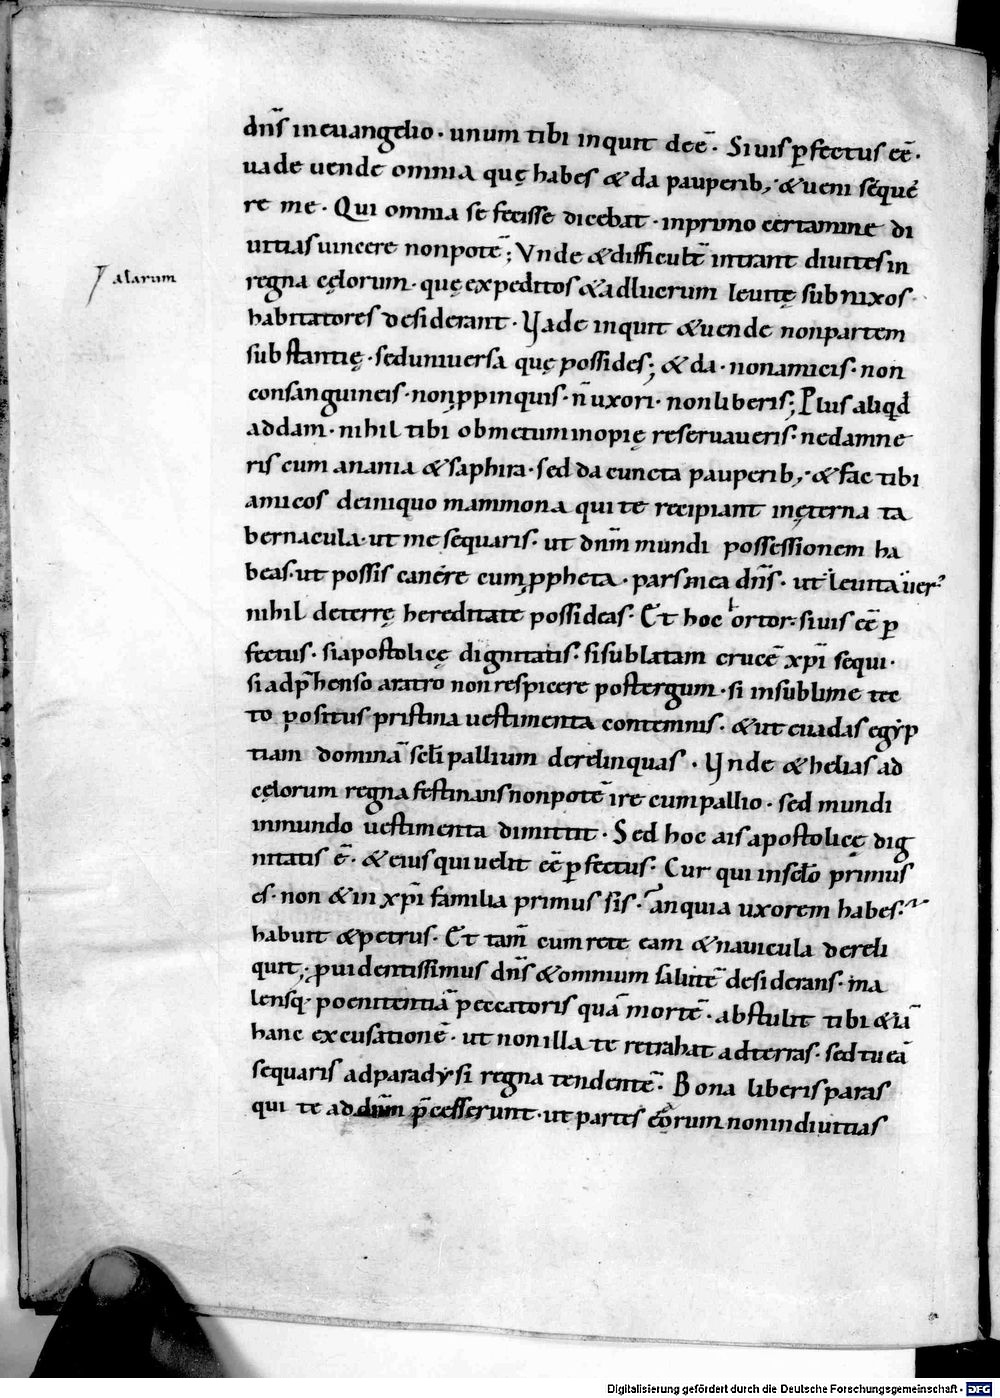 dn̄s in euangelio · unum tibi inquit deē · Si uis ꝑfectus eē ·
uade uende omnia quę habes & da pauperib; · & ueni sequé
re me · Qui omnia se fecisse dicebat · inprimo certamine di
uitias uincere nonpotē ; Vnde & difficult̄ intrant diuites in
⌈ alarum
regna cęlorum · quę expeditos & adluerum leuitę subnixos ·
habitatores desiderant · Vade inquit & uende nonpartem
substantię · seduniuersa quę possides ; & da · nonamicis · non
consanguineis · nonꝓpinquis · n̄ uxori · nonliberis ; Plus aliqd̄
addam · nihil tibi obmetuminopię reseruaueris · nedamne
ris cum anania & saphira · sed da cuncta pauperib; · & fac tibi
amicos deiniquo mammona qui te recipiant inęterna ta
bernacula · ut me sequaris · ut dn̄m mundi possessionem ha
beas · ut possis canére cumꝓpheta · pars mea dn̄s · ut leuita uer᷒
nihil deterrę hereditate possideas · Et hoc hortor · si uis eē ꝑ
fectus · si apostolicę dignitatis · si sublatam crucē xp̄i sequi ·
si adp̄henso aratro non respicere postergum · si insublime tec
to positus pristina uestimenta contemnis · & ut euadas egyp
tiam dominā sclī pallium derelinquas · Vnde & helias ad
cęlorum regna festinans nonpotē ire cumpallio · sed mundi
inmundo uestimenta dimittit · Sed hoc ais apostolicę dig
nitatis ē · & eius qui uelit eē ꝑfectus · Cur qui insclo primus
es · non & in xp̄i familia primus sis · an quia uxorem habes ·
habuit & petrus · Et tam̄ cum rete eam & nauicula dereli
quit ; ꝓuidentissimus dn̄s & omnium salutē desiderans · ma
lensq; poenitentiā peccatoris quā mortē · abstulit tibi & iā
hanc excusationē · ut non illa te retrahat adterras · sed tu eā
sequaris adparadysi regna tendentē · Bona liberis paras
qui te ad dn̄m p̄cesserunt · ut partes eorum nonindiuitias
Digitalisierung gefördert durch die Deutsche Forschungsgemeinschaft - DFG